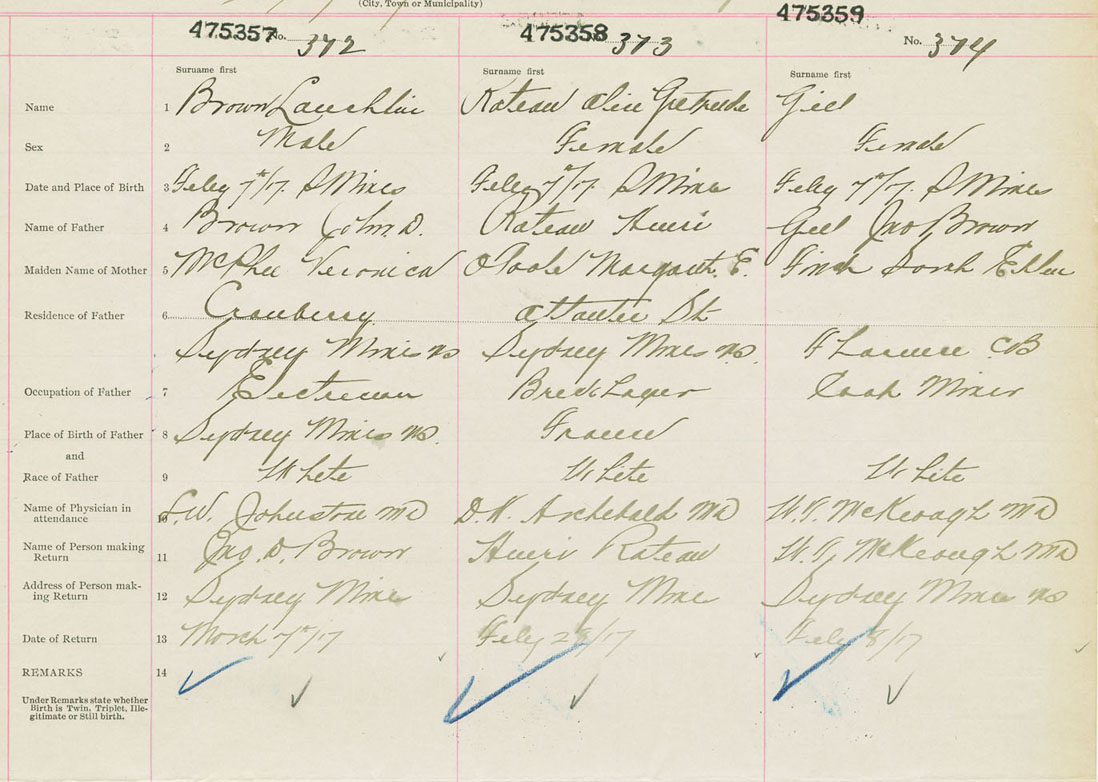 (City, Town or Municipality)
475357 No. 372 475358 373 475359 No. 374
Surname first Surname first Surname first
Name 1 Brown Lauchlin Rateau Gertrude Giel
Sex 2 Male Female Female
Date and Place of Birth 3 Feby 7th/17. S Mines Feby 7th/17. S Mines Feby 7th/17. S Mines
Name of Father 4 Brown John D. Rateau Henri Giel Jno Brown
Maiden Name of Mother 5 McPhee Veronica OToole Margaret. E. Finch Sarah Ellen
Residence of Father 6 Cranberry Atlantic St
Sydney Mines NS Sydney Mines NS. Florence CB
Occupation of Father 7 Electrician Brick Layer Coal Miner
Place of Birth of Father 8 Sydney Mines NS. France
and
Race of Father 9 White White White
Name of Physician in attendance 10 Johnstone MD Archibald MD McKeough MD
Name of Person making Return 11 Jno. D. Brown Henri Rateau McKeough MD
Address of Person making Return 12 Sydney Mines Sydney Mines Sydney Mines NS
Date of Return 13 March 7th/17 Feby 28/17 Feby 8/17
REMARKS 14
Under Remarks state whether
Birth is Twin, Triplet, Ille-
gitimate or Still birth.